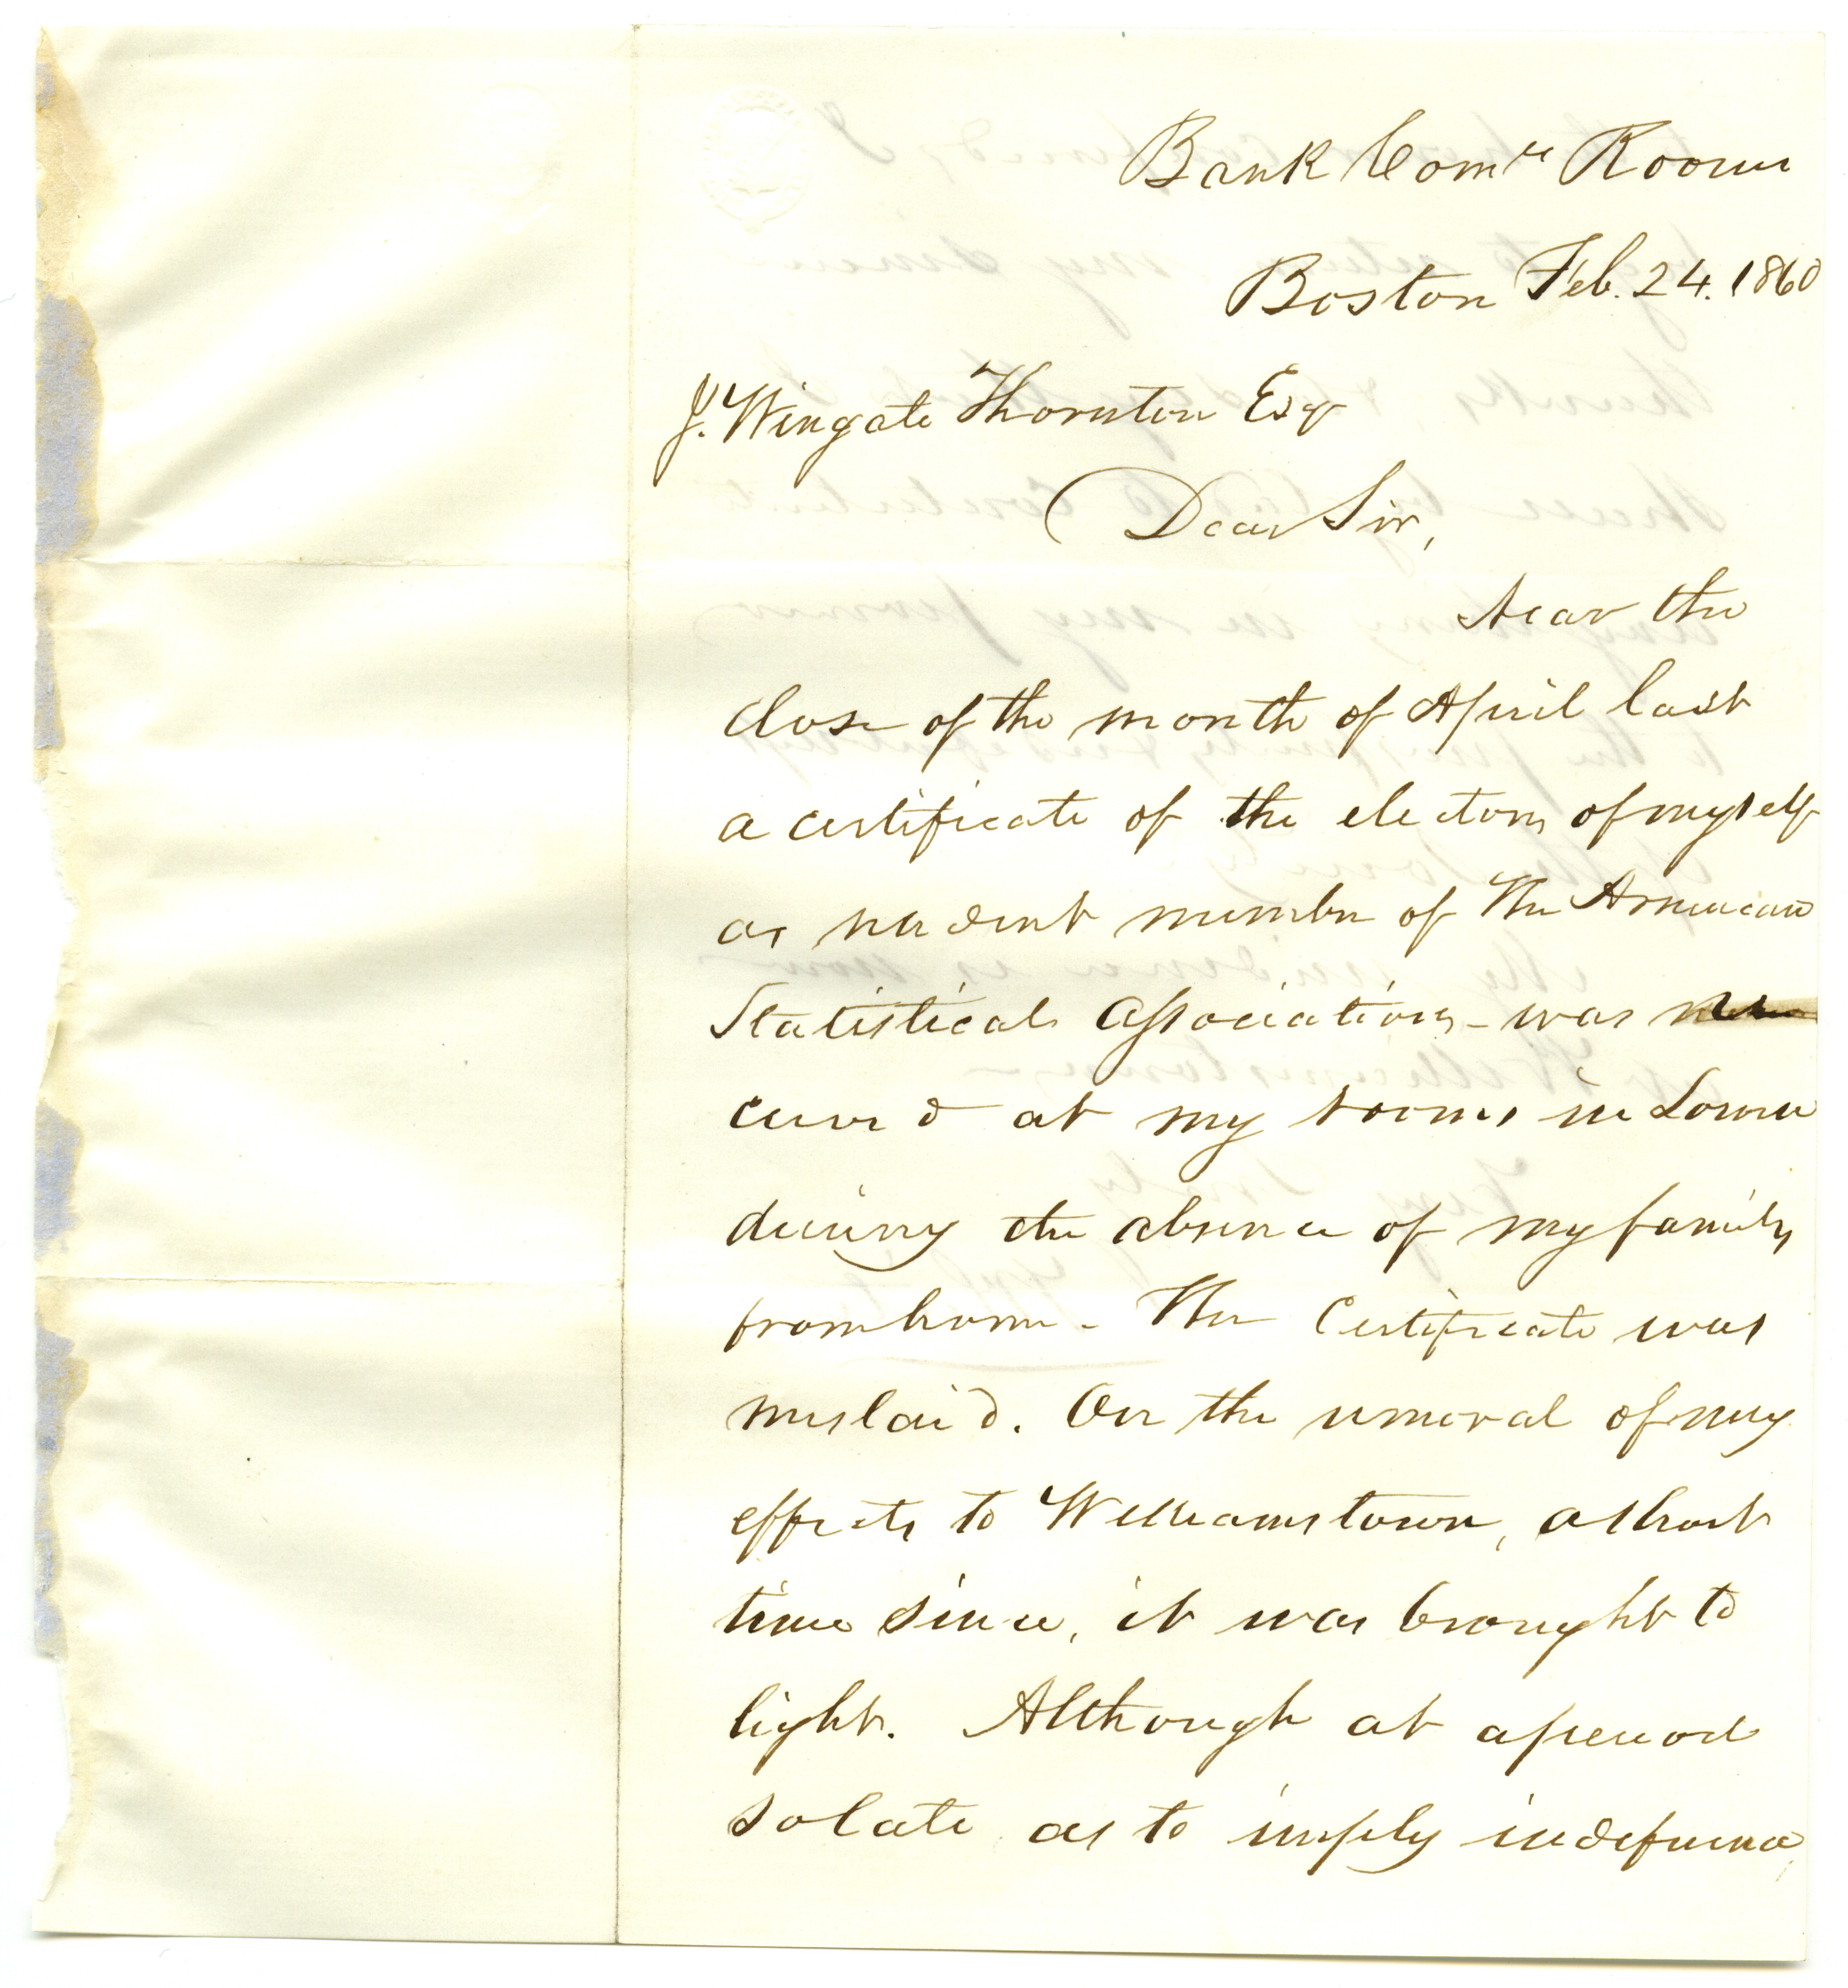 Bank Comrs Room
Boston Feb. 24. 1860
J. Wingate Thornton Esq
Dear Sir,
Near the
close of the month of April last
a certificate of the election of myself
as resident member of The American
Statistical Association - was re
ceived at my rooms in
during the absence of my family
from home - The Certificate was
mislaid. On the removal of my
effects to Williamstown, a short
time since, it was brought to
light. Although at a period
so late as to imply indifference,